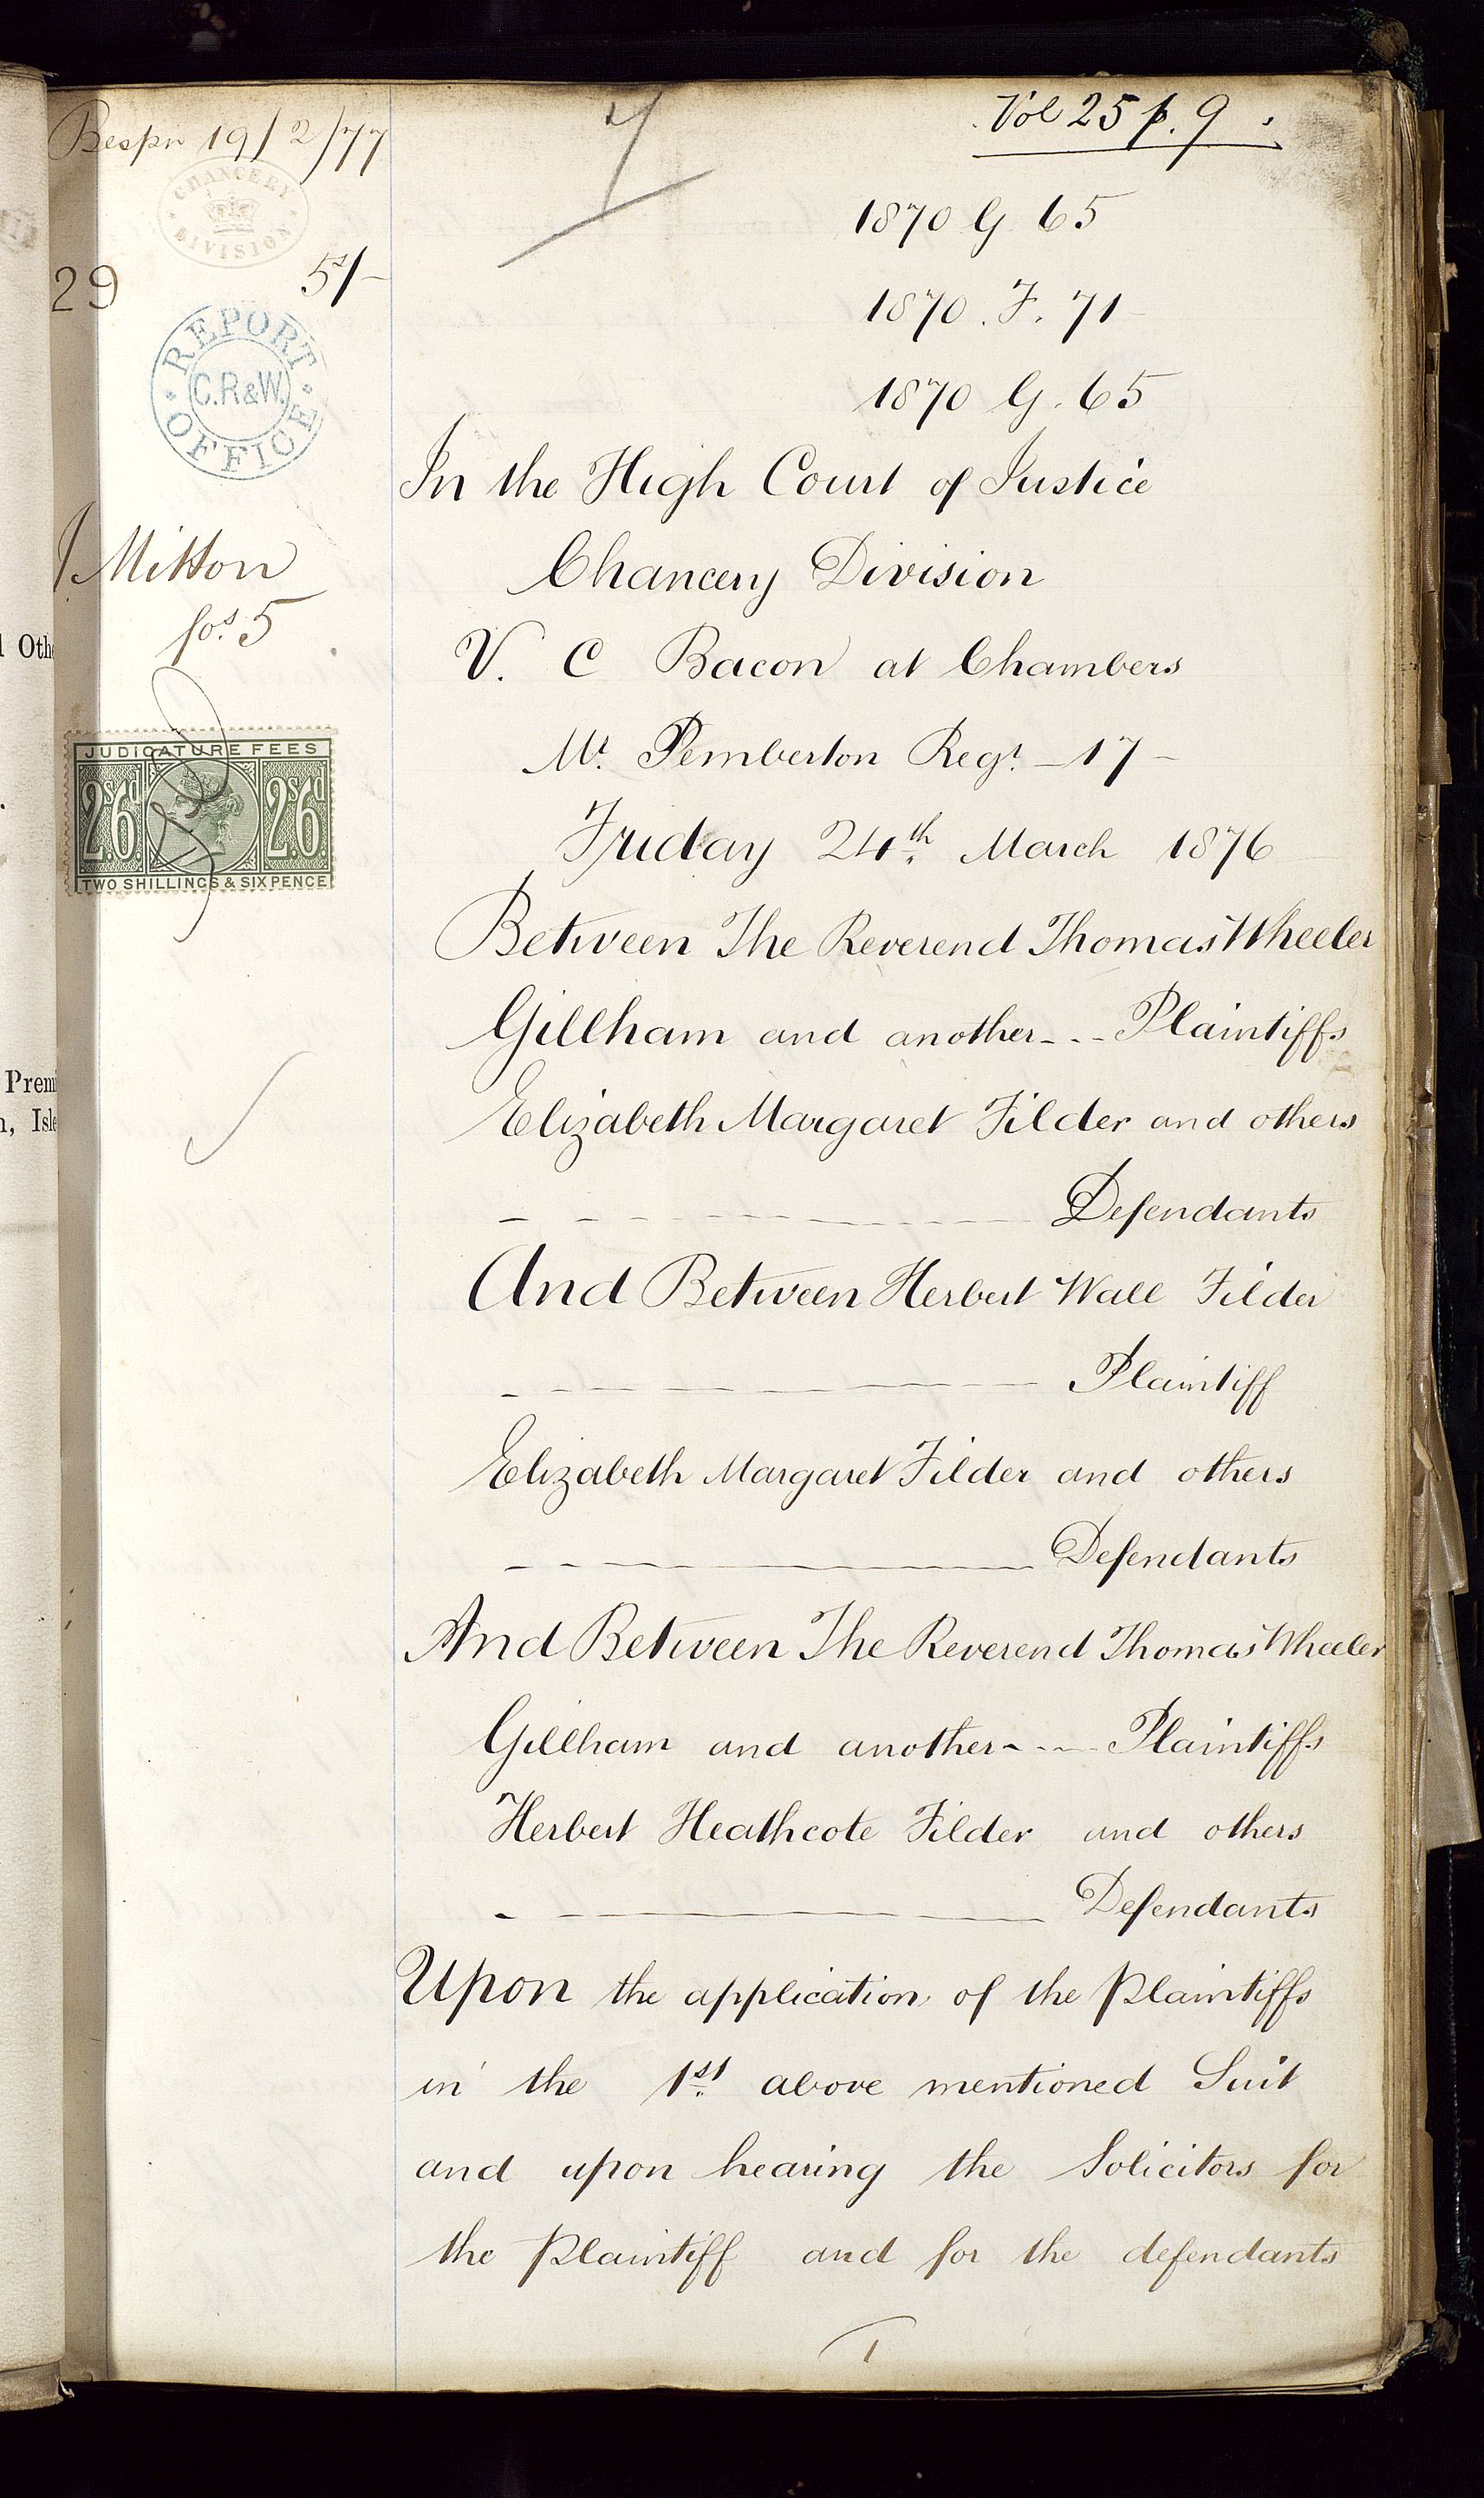 Bespn 19/2/77
Vol 25 p. 9
7
CHANCERY DIVISION
1870 G 65
29
5/-
1870. F. 71
REPORT OFFICE
C.R&W.
1870 G. 65
In the High Court of Justice
Mitton
Chancery Division
fos. 5
l Othe
V. C Bacon at Chambers
Mr. Pemberton Regr. - 17 -
JUDICATURE FEES
2s6d 2s6d
TWO SHILLINGS & SIXPENCE
Friday 24th March 1876
Between The Reverend Thomas Wheeler
Gillham and another - - - Plaintiffs
Premi
n, Isle
Elizabeth Margaret Filder and others
Defendants
And Between Herbert Wall Filder
Plaintiff
Elizabeth Margaret Filder and others
Defendants
And Between The Reverend Thomas Wheeler
Gillham and another - - - Plaintiffs
Herbert Heathcote Filder and others
Defendants
Upon the application of the Plaintiffs
in the 1st above mentioned Suit
and upon hearing the Solicitors for
the Plaintiff and for the defendants
1